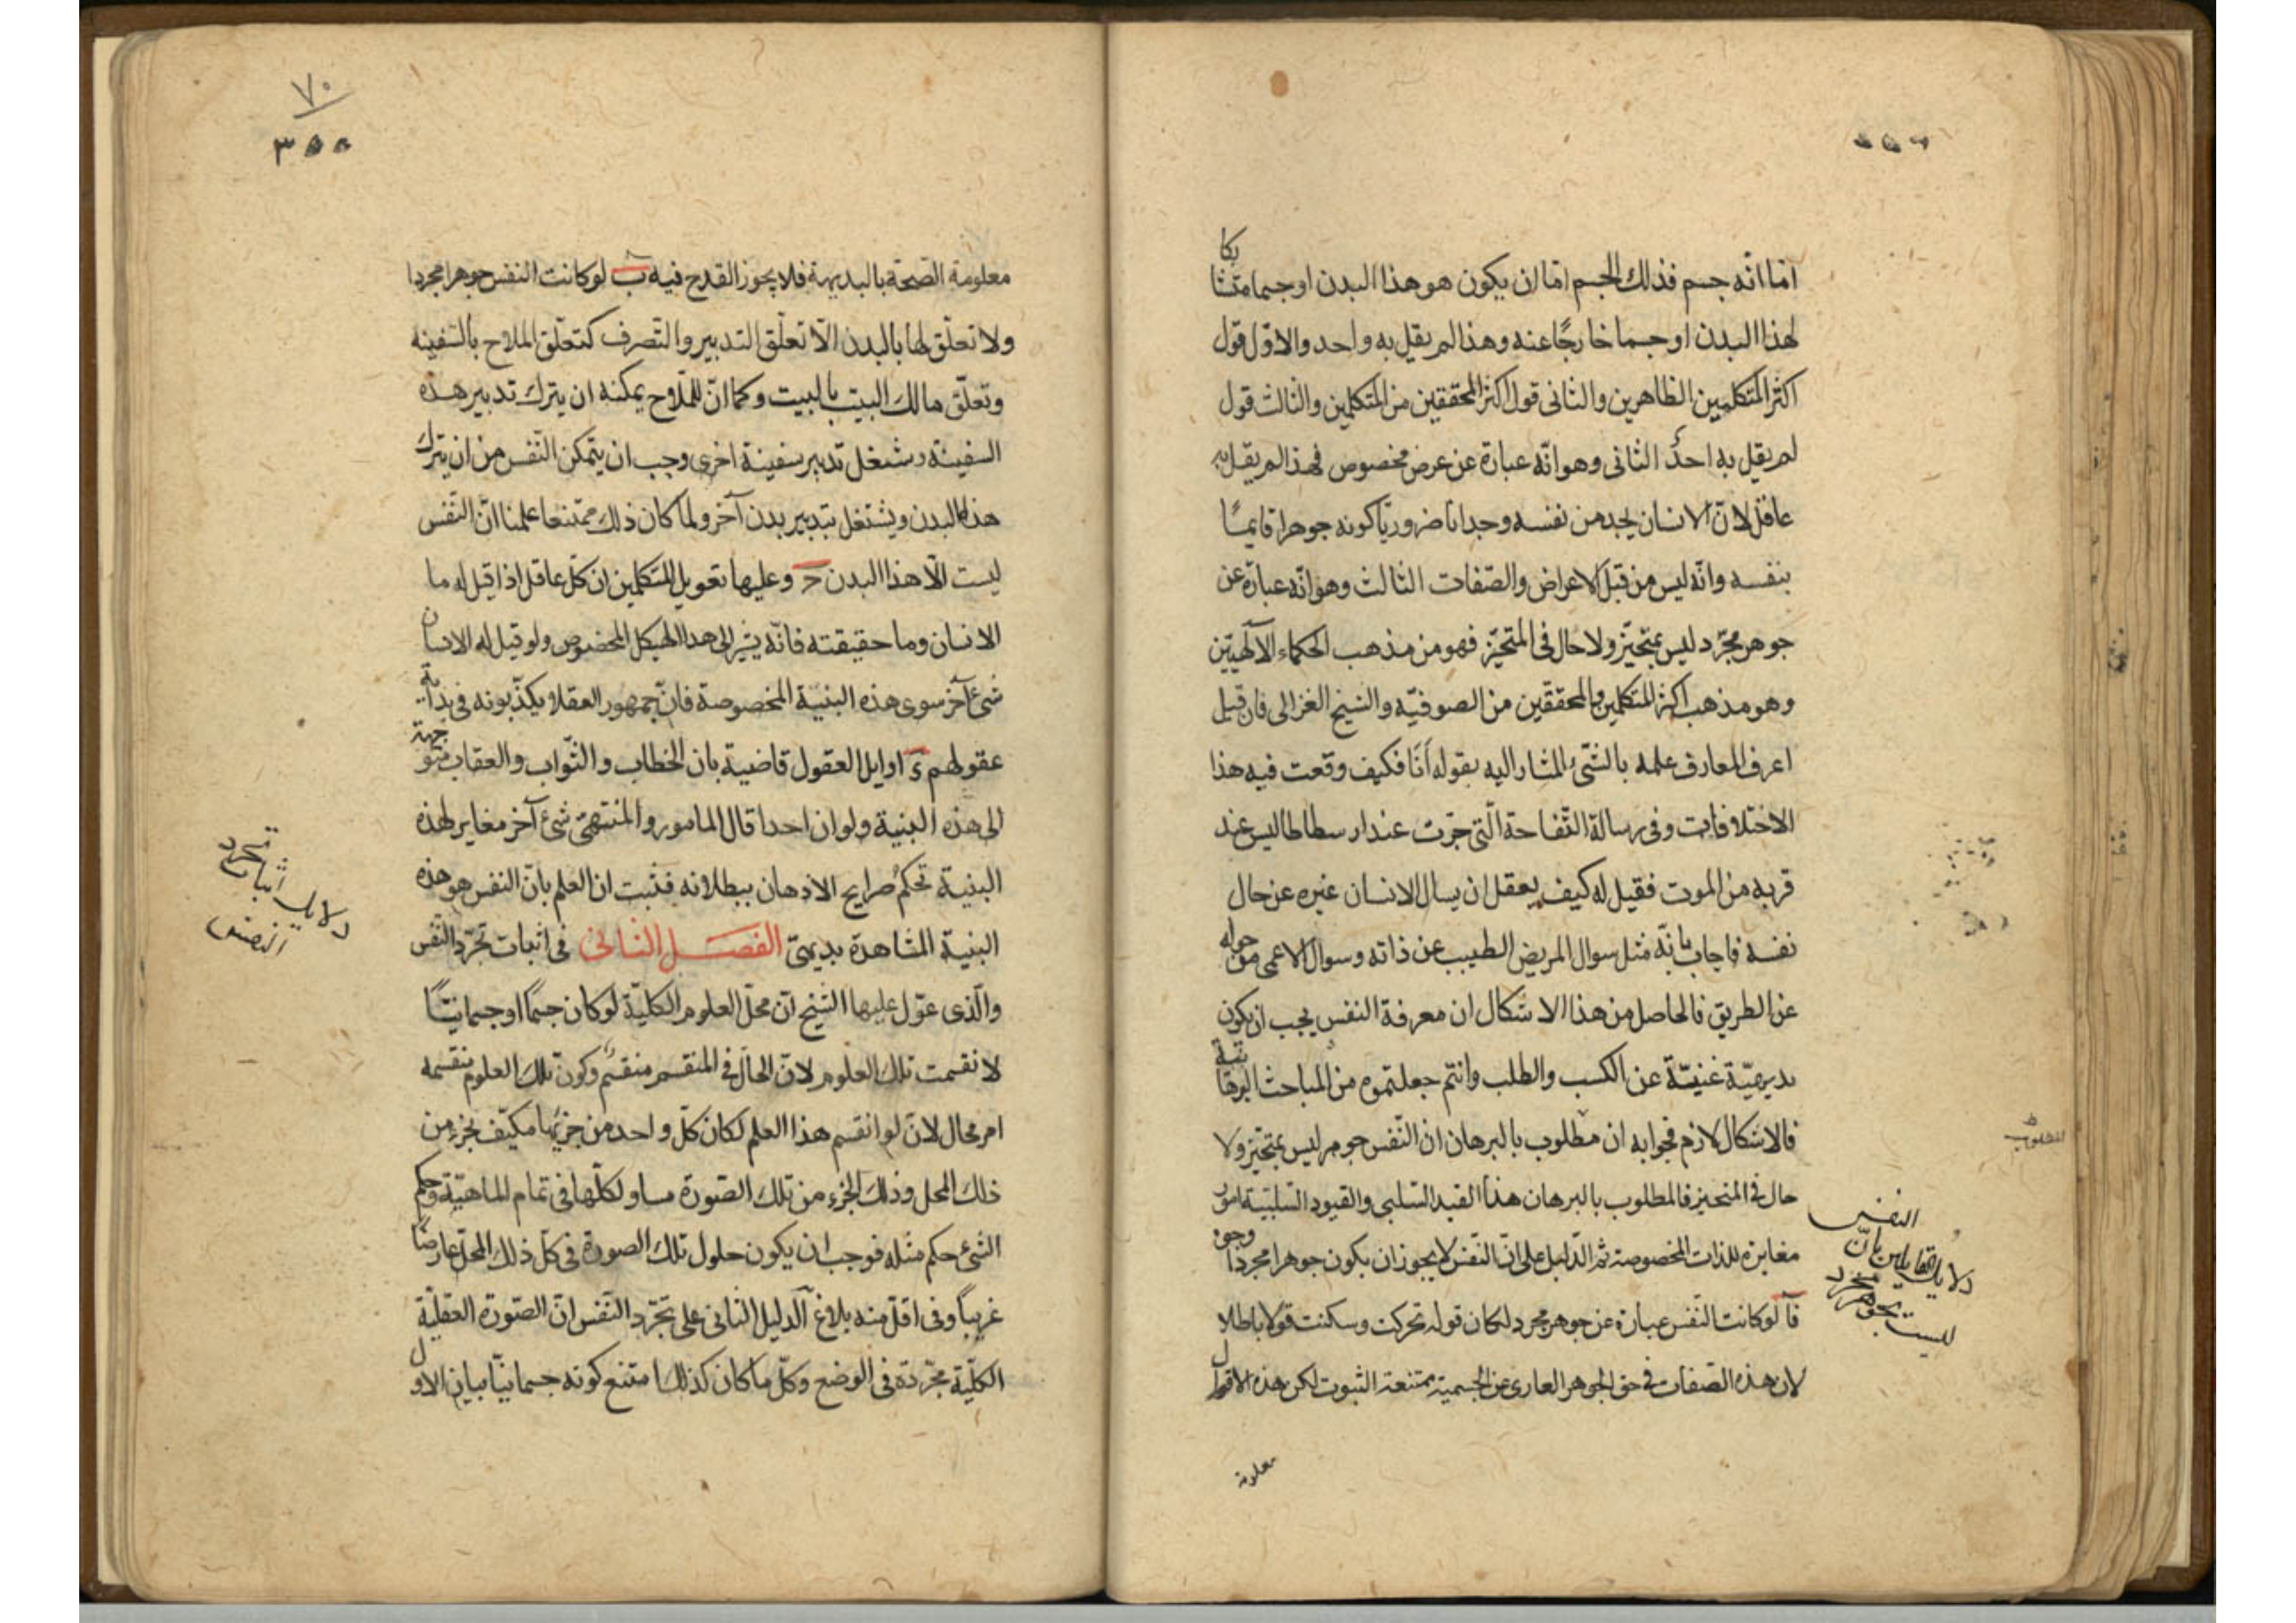 اما انّه جسم فذلك الجسم اما ان يكون هو هذا البدن او جسما متشابكا
لهذا البدن او جسما خارجًا عنه وهذا لم يقل به واحد والاوّل قول
اكثر المتكلمين الظاهرين والثانى قول اكثر المحققين من المتكلمين والثالث قول
لم يقل به احدٌ الثانى وهو انّه عبارة عن عرض مخصوص فهذا لم يقل به
عاقل لانّ الانسان يجد من نفسه وجدانا ضروريّا كونه جوهرا قايمًا
بنفسه وانّه ليس من قبل الاعراض والصّفات الثالث وهو انّه عبارة عن
جوهر مجرّد ليس بمتحيّز ولا حال فى المتحيّز فهو من مذهب الحكماء الآلهيّين
وهو مذهب اكثر المتكلمين والمحققين من الصوفيّه والشيخ الغزالى فان قيل
اعرف المعارف علمه بالشّئ المشار اليه بقوله أنَا فكيف وقعت فيه هذا
الاختلافات وفى رسالة التّفاحة الّتى جرت عند ارسطاطاليس عند
قربه من الموت فقيل له كيف يعقل ان يسال الانسان غيره عن حال
نفسه فاجاب بانّه مثل سوال المريض الطبيب عن ذاته وسوال الاعمى من حوله
عن الطريق فالحاصل من هذا الاشكال ان معرفة النفس يجب ان يكون
بديهيّة غنيّة عن الكسب والطلب وانتم جعلتموه من المباحث البرهانية
فالاشكال لازم فجوابه ان مطلوب بالبرهان انّ النّفس جوهر ليس بمتحيّز ولا
حال فى المتحيز فالمطلوب بالبرهان هذا القيد السّلبى والقيود السّلبيّة امور
مغايرة للذات المخصوصة ثم الدّليل على انّ النّفس لا يجوز ان يكون جوهرا مجردا وجوه
فآ لو كانت النّفس عبارة عن جوهر مجرد لكان قوله تحركت وسكنت قولا باطلا
لان هذه الصّفات فى حق الجوهر العارى عن الجسمية ممتنعة الثبوت لكن هذه الاقوال
معلومة
المطلوب
النفس
دلايل القايلين بانّ
ليست بجوهر مجرد
٧٠
٣٥٥
معلومة الصّحة بالبديهة فلا يجوز القدح فيه ب لو كانت النّفس جوهرا مجردا
ولا تعلّق لها بالبدن الّا تعلّق التدبير والتّصرف كتعلّق الملاح بالسّفينه
وتعلّق مالك البيت بالبيت وكما انّ للملّاح يمكنه ان يترك تدبير هذه
السفينة ويشغل تدبير سفينة اخرى وجب ان يتمكن النّفس من ان يترك
هذا البدن ويشتغل بتدبير بدن آخر ولما كان ذلك ممتنعا علمنا انّ النّفس
ليست الّا هذا البدن ج وعليها تعويل المتكلمين ان كلّ عاقل اذا قيل له ما
الانسان وما حقيقته فانّه يشير الى هذا الهيكل المخصوص ولو قيل له الانسان
شئ آخر سوى هذه البنية المخصوصة فانّ جمهور العقلا يكذّبونه فى بداية
عقولهم د اوايل العقول قاضية بان الخطاب والثّواب والعقاب متوجهة
الى هذه البنية ولو ان احدا قال المامور والمنتهىّ شئ آخر مغاير لهذه
البنية تحكم صرايح الاذهان ببطلانه فثبت ان العلم بانّ النفس هو هذه
البنية المشاهدة بديهىّ الفصل الثانى فى اثبات تجرّد النّفس
والّذى عوّل عليها الشيخ انّ محلّ العلوم الكليّة لو كان جسمًا او جسمانيّا
لانقسمت تلك العلوم لانّ الحالّ فى المنقسم منقسم وكون تلك العلوم منقسمه
امر محال لانّ لو انقسم هذا العلم لكان كلّ واحد من جزئيها مكيّف بجزء من
ذلك المحل وذلك الجزء من تلك الصّورة مساو لكلّها فى تمام الماهيّة وحكم
الشئ حكم مثله فوجب ان يكون حلول تلك الصورة فى كلّ ذلك المحلّ عارضًا
غريباً وفى اقلّ منه بلاغ آلدليل الثّانى على تجرّد النّفس انّ الصّورة العقليّة
الكليّة مجرّدة فى الوضع وكلّ ما كان كذلك امتنع كونه جسمانيّا بيان الاول
دلايل اثبات تجرد
النفس